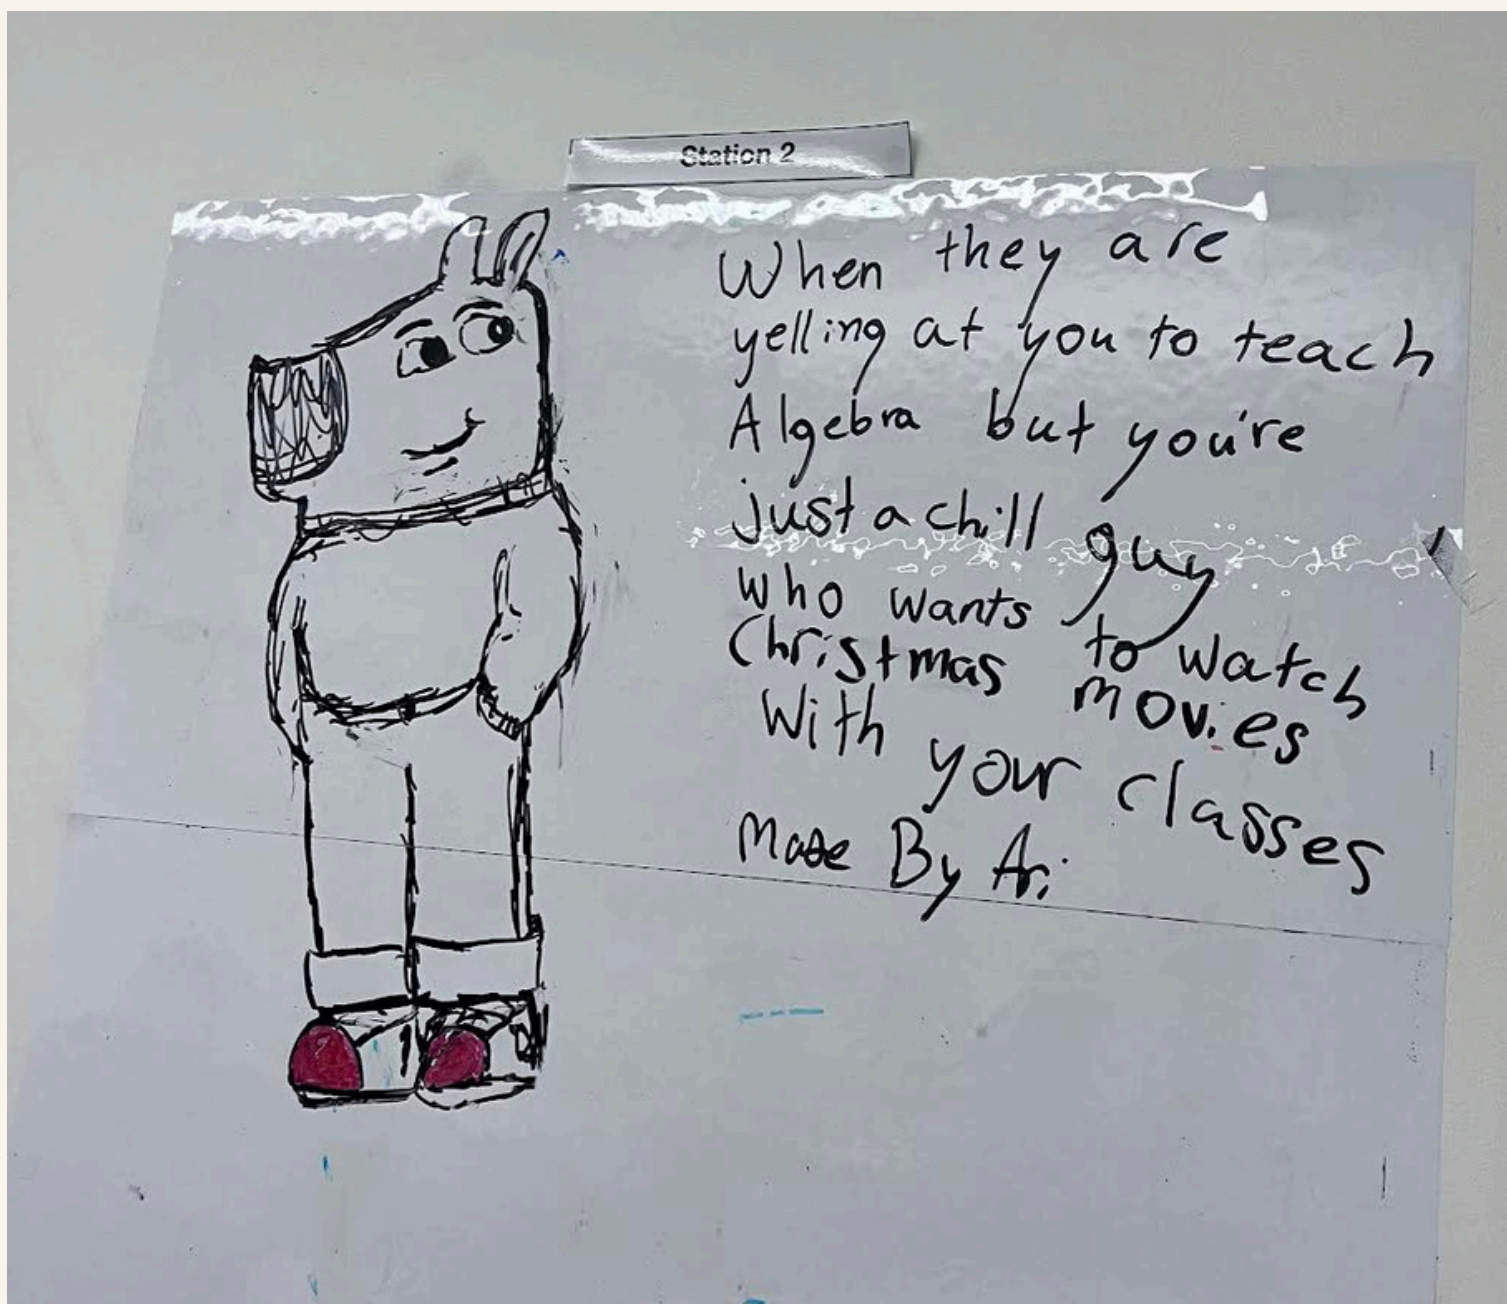 Station 2
When they are
yelling at you to teach
Algebra but you're
just a chill guy
who wants to watch
Christmas movies
With your classes
Made By Ari